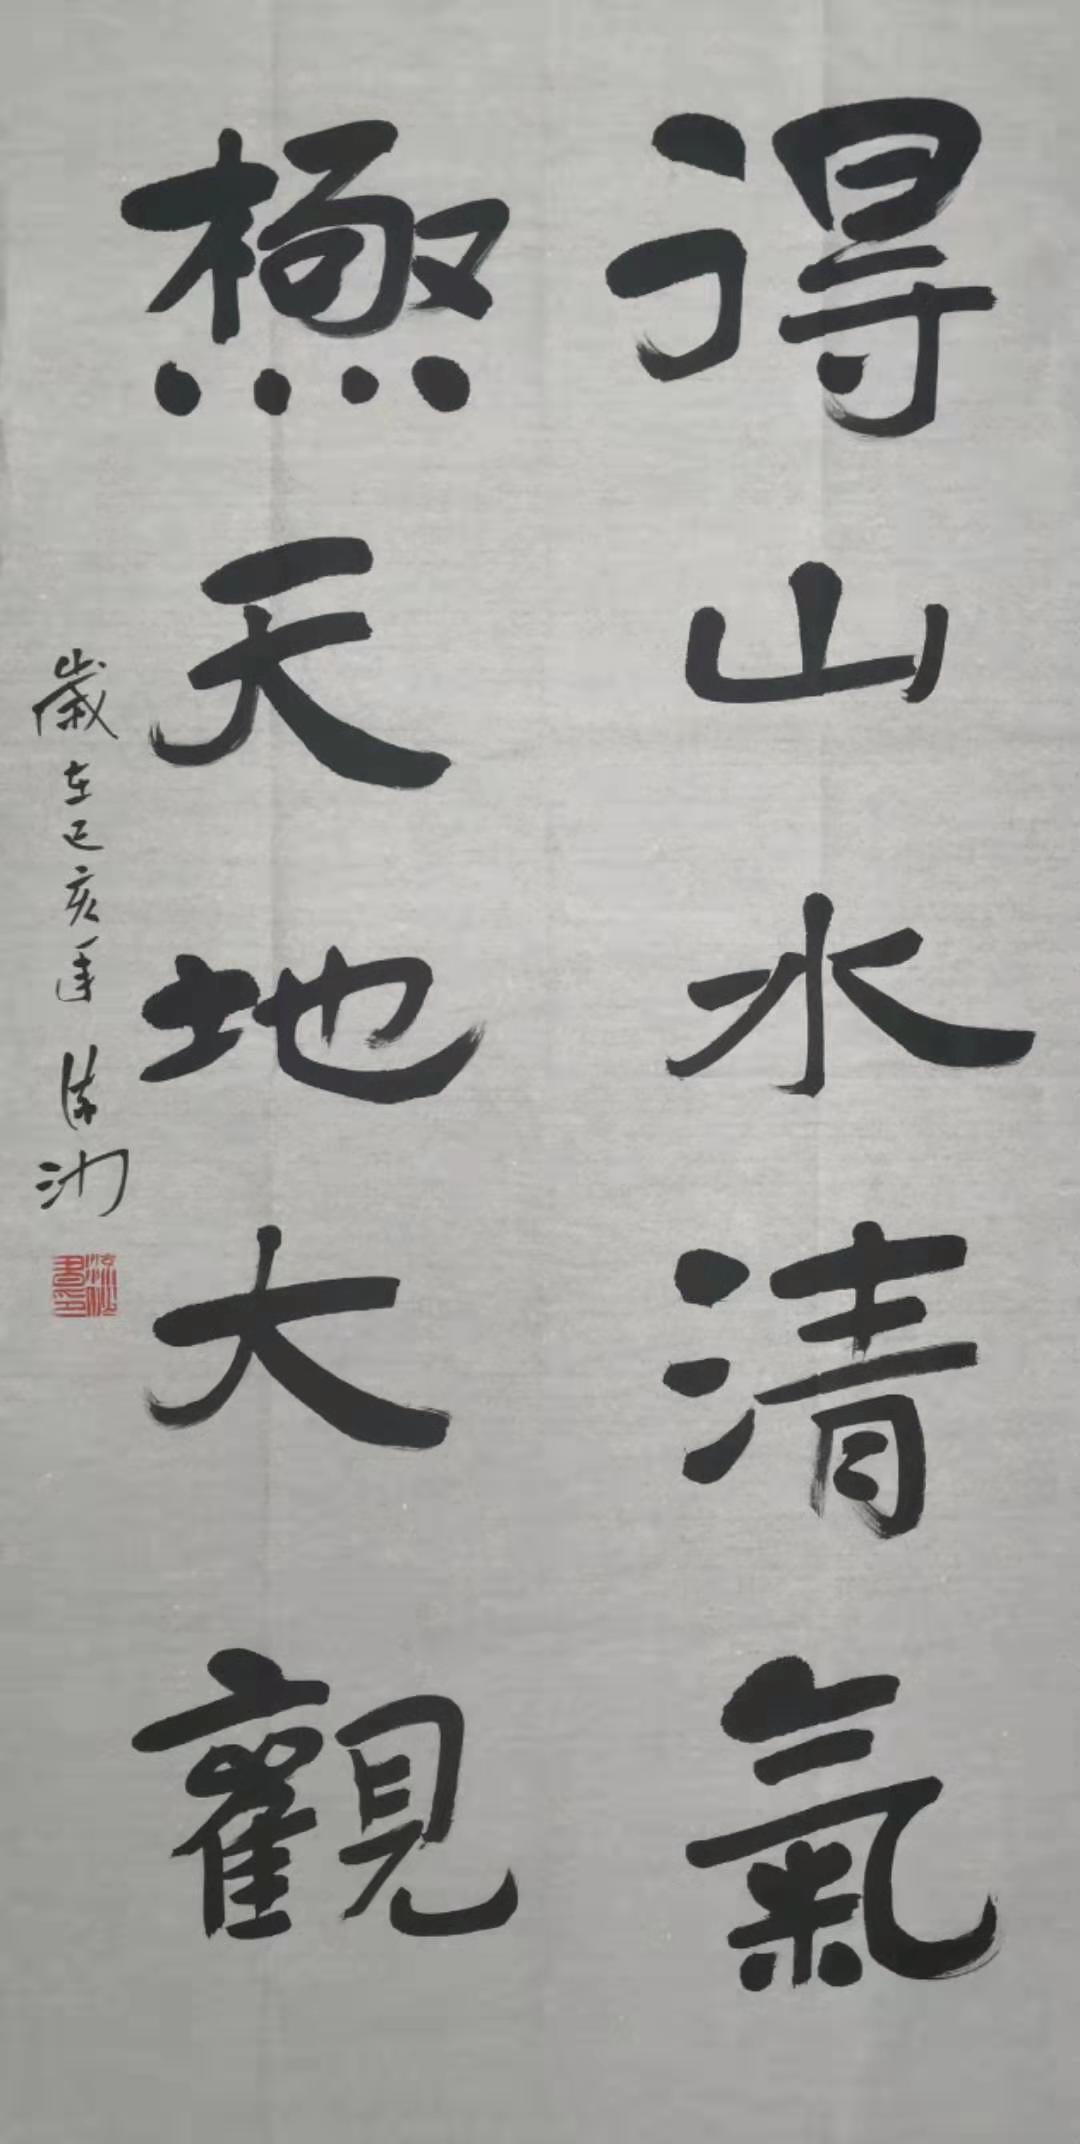 得山水清氣
極天地大觀
歲在己亥年